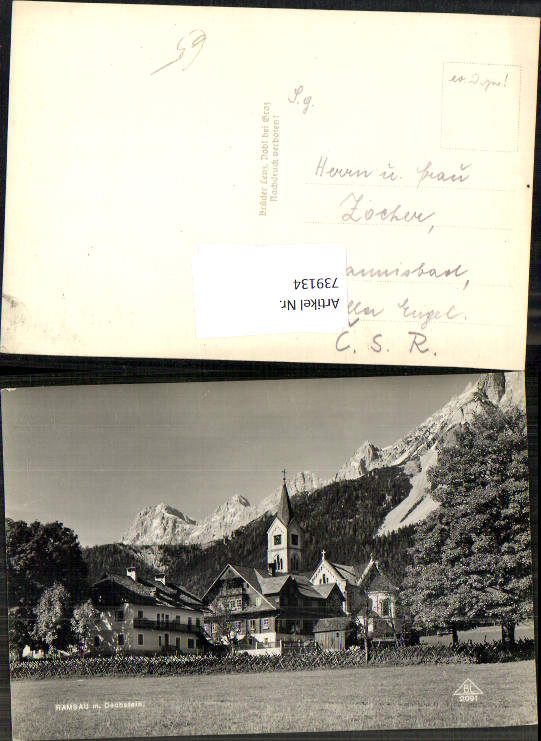 59
Brüder Lenz, Dobl bei Graz
Nachdruck verboten!
S.g.
Herrn u. Frau
Zocher,
annisbad,
Engel.
Č. S. R.
Artikel Nr.
739134
RAMSAU m. Dachstein.
BL
2091